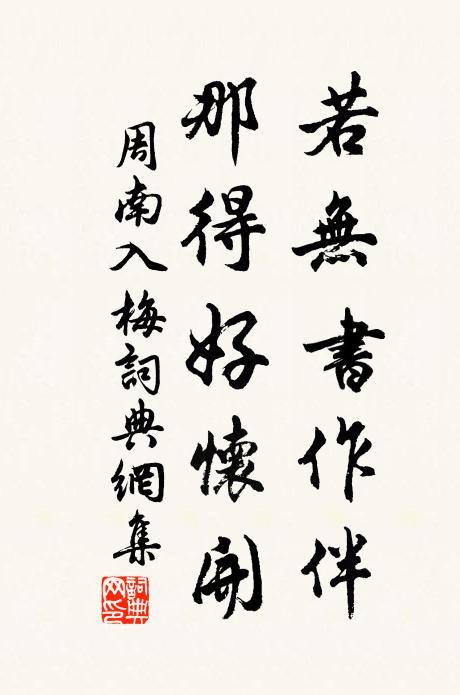 若無書作伴
那得好懷開
周南入梅詞典網集
詞典網印